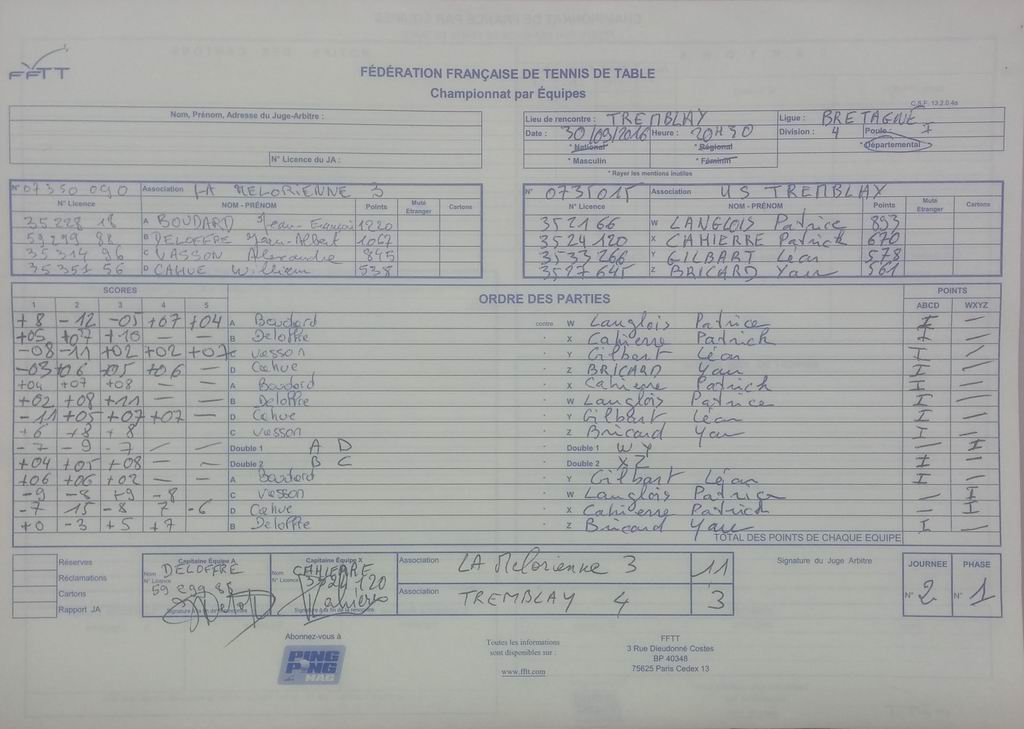 FFTT
FÉDÉRATION FRANÇAISE DE TENNIS DE TABLE
Championnat par Équipes
C.S.F. 13.2.0.4a
Nom, Prénom, Adresse du Juge-Arbitre :
N° Licence du JA :
Lieu de rencontre : TREMBLAY Ligue : BRETAGNE
Date : 30/09/2016 Heure : 20H30 Division : 4 Poule : I
* National * Régional * Départemental
* Masculin * Féminin
* Rayer les mentions inutiles
N° 07350090 Association LA MELORIENNE 3
N° Licence NOM - PRÉNOM Points Muté Etranger Cartons
35228 18 A BOUDARD Jean-François 1220
59299 82 B DELOFFRE Jean-Albert 1067
35314 96 C VASSON Alexandre 845
35351 56 D CAHUE William 538
N° 0735015 Association US TREMBLAY
N° Licence NOM - PRÉNOM Points Muté Etranger Cartons
352166 W LANGLOIS Patrice 893
3524120 X CAHIERRE Patrick 670
3533266 Y GILBART Léan 578
3527645 Z BRICARD Yan 561
SCORES ORDRE DES PARTIES POINTS
1 2 3 4 5 ABCD WXYZ
+8 -12 -05 +07 +04 A Boudard contre W Langlois Patrice I —
+05 +07 +10 — — B Deloffre X Cahierre Patrick I —
-08 -11 +02 +02 +07 C Vasson Y Gilbart Léan I —
-03 +06 +05 +06 — D Cahue Z BRICARD Yan I —
+04 +07 +08 — — A Boudard X Cahierre Patrick I —
+02 +08 +11 — — B Deloffre W Langlois Patrice I —
-11 +05 +07 +07 — D Cahue Y Gilbart Léan I —
+6 +8 +8 C Vasson Z Bricard Yan I —
-7 -9 -7 Double 1 A D Double 1 W Y — I
+04 +05 +08 — — Double 2 B C Double 2 X Z I —
+06 +06 +02 — — A Boudard Y Gilbart Léan I —
-9 -8 +9 -8 C Vasson W Langlois Patrice — I
-7 15 -8 7 -6 D Cahue X Cahierre Patrick — I
+0 -3 +5 +7 B Deloffre Z Bricard Yan I —
TOTAL DES POINTS DE CHAQUE EQUIPE
Réserves
Réclamations
Cartons
Rapport JA
Capitaine Équipe A
Nom DELOFFRE
N° Licence
Capitaine Équipe X
Nom CAHIERRE
N° Licence 3524120
Association LA Melorienne 3 11
Association TREMBLAY 4 3
Signature du Juge Arbitre
JOURNEE PHASE
N° 2 N° 1
Abonnez-vous à
PING PONG MAG
Toutes les informations
sont disponibles sur :
www.fftt.com
FFTT
3 Rue Dieudonné Costes
BP 40348
75625 Paris Cedex 13